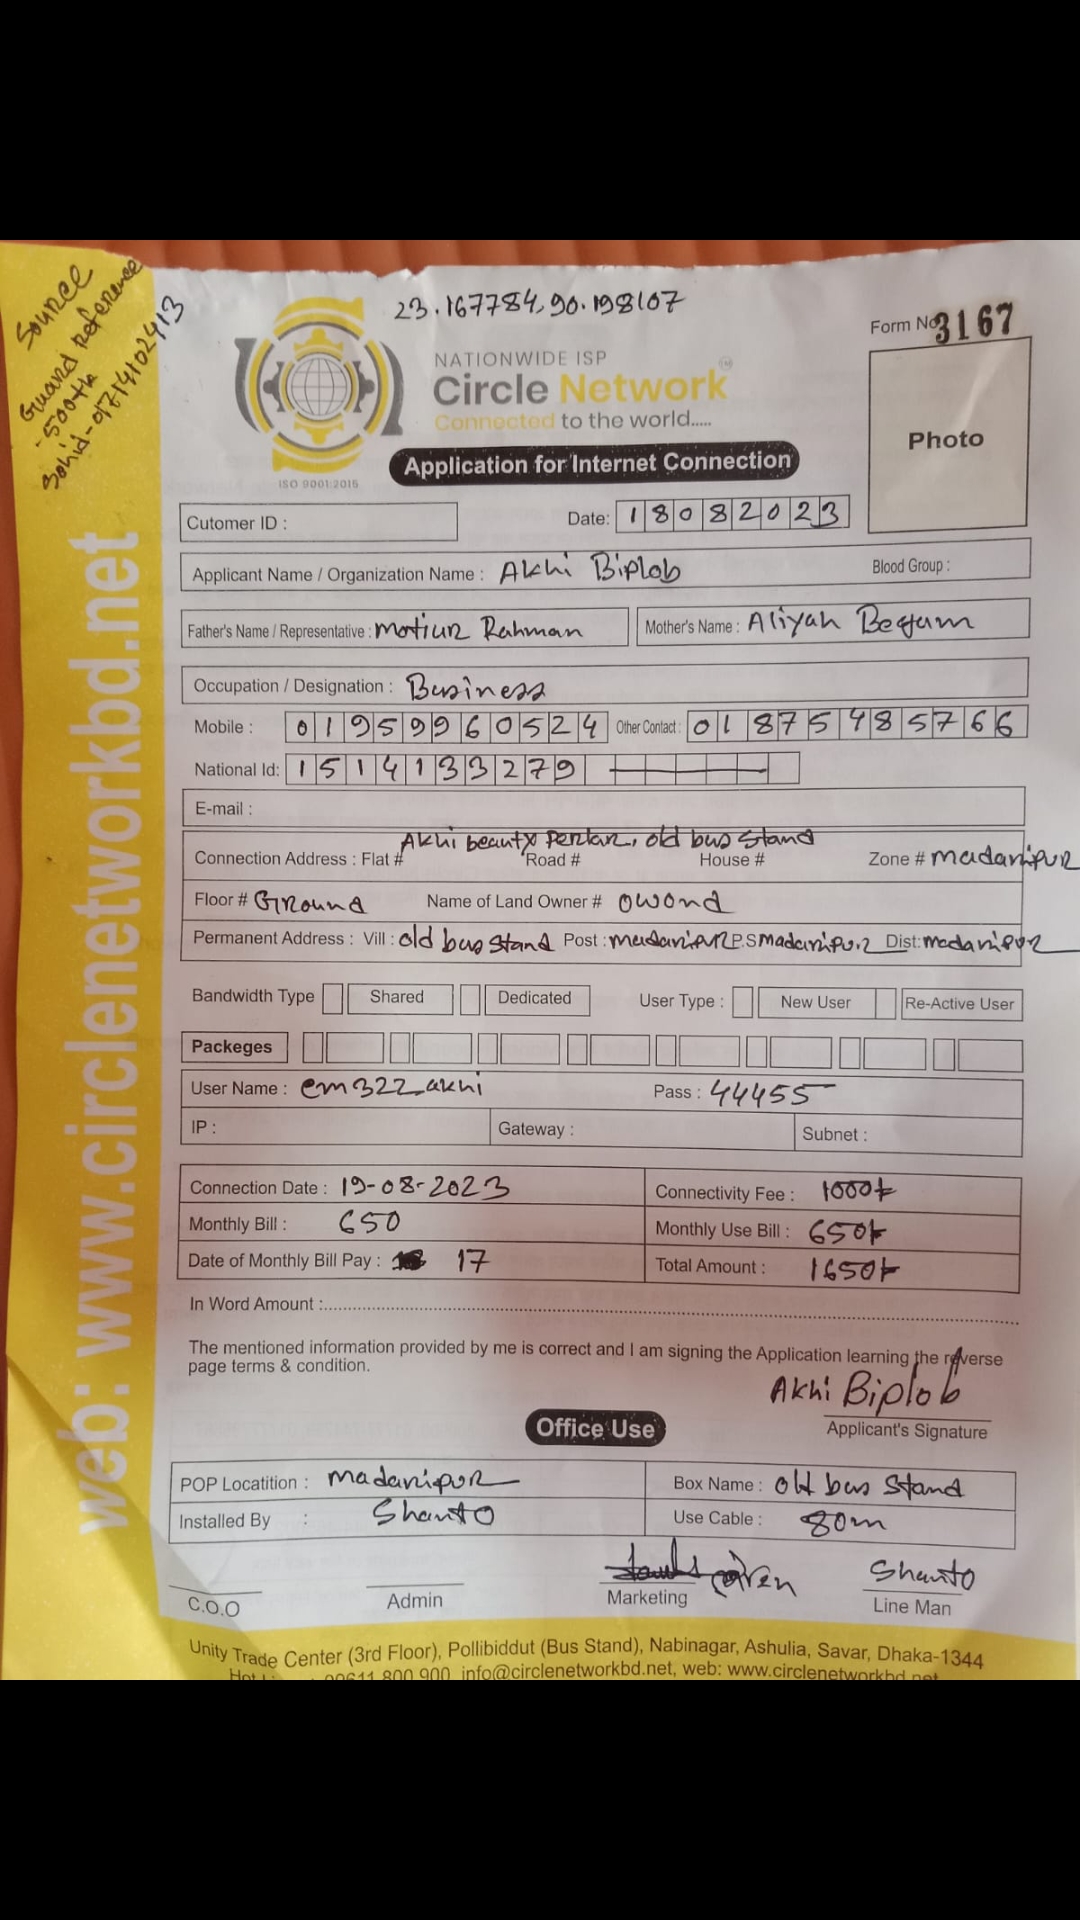 Source
Guard Reference
-500tk
Sohid-01714102413
23.167784,90.198107
Form No 3167
NATIONWIDE ISP
Circle Network
Connected to the world.....
ISO 9001:2015
Photo
Application for Internet Connection
Cutomer ID :
Date: 18082023
Applicant Name / Organization Name : Akhi Biplob Blood Group :
Father's Name / Representative : Motiur Rahman Mother's Name : Aliyah Begum
Occupation / Designation : Business
Mobile : 01959960524 Other Contact : 01875485766
National Id: 1514133279
E-mail :
Akhi beauty Perlar, old bus stand
Connection Address : Flat # Road # House # Zone # madaripur
Floor # Ground Name of Land Owner # owond
Permanent Address : Vill : old bus stand Post : madaripur P.S madaripur Dist: madaripur
Bandwidth Type Shared Dedicated User Type : New User Re-Active User
Packeges
User Name : em322_akhi Pass : 44455
IP : Gateway : Subnet :
Connection Date : 19-08-2023 Connectivity Fee : 1000/-
Monthly Bill : 650 Monthly Use Bill : 650/-
Date of Monthly Bill Pay : 17 Total Amount : 1650/-
In Word Amount :
The mentioned information provided by me is correct and I am signing the Application learning the reverse
page terms & condition.
Akhi Biplob
Applicant's Signature
Office Use
POP Locatition : madaripur Box Name : old bus stand
Installed By : Shanto Use Cable : 80m
Shanto
C.O.O Admin Marketing Line Man
Unity Trade Center (3rd Floor), Pollibiddut (Bus Stand), Nabinagar, Ashulia, Savar, Dhaka-1344
09611 800 900, info@circlenetworkbd.net, web: www.circlenetworkbd.net
web: www.circlenetworkbd.net